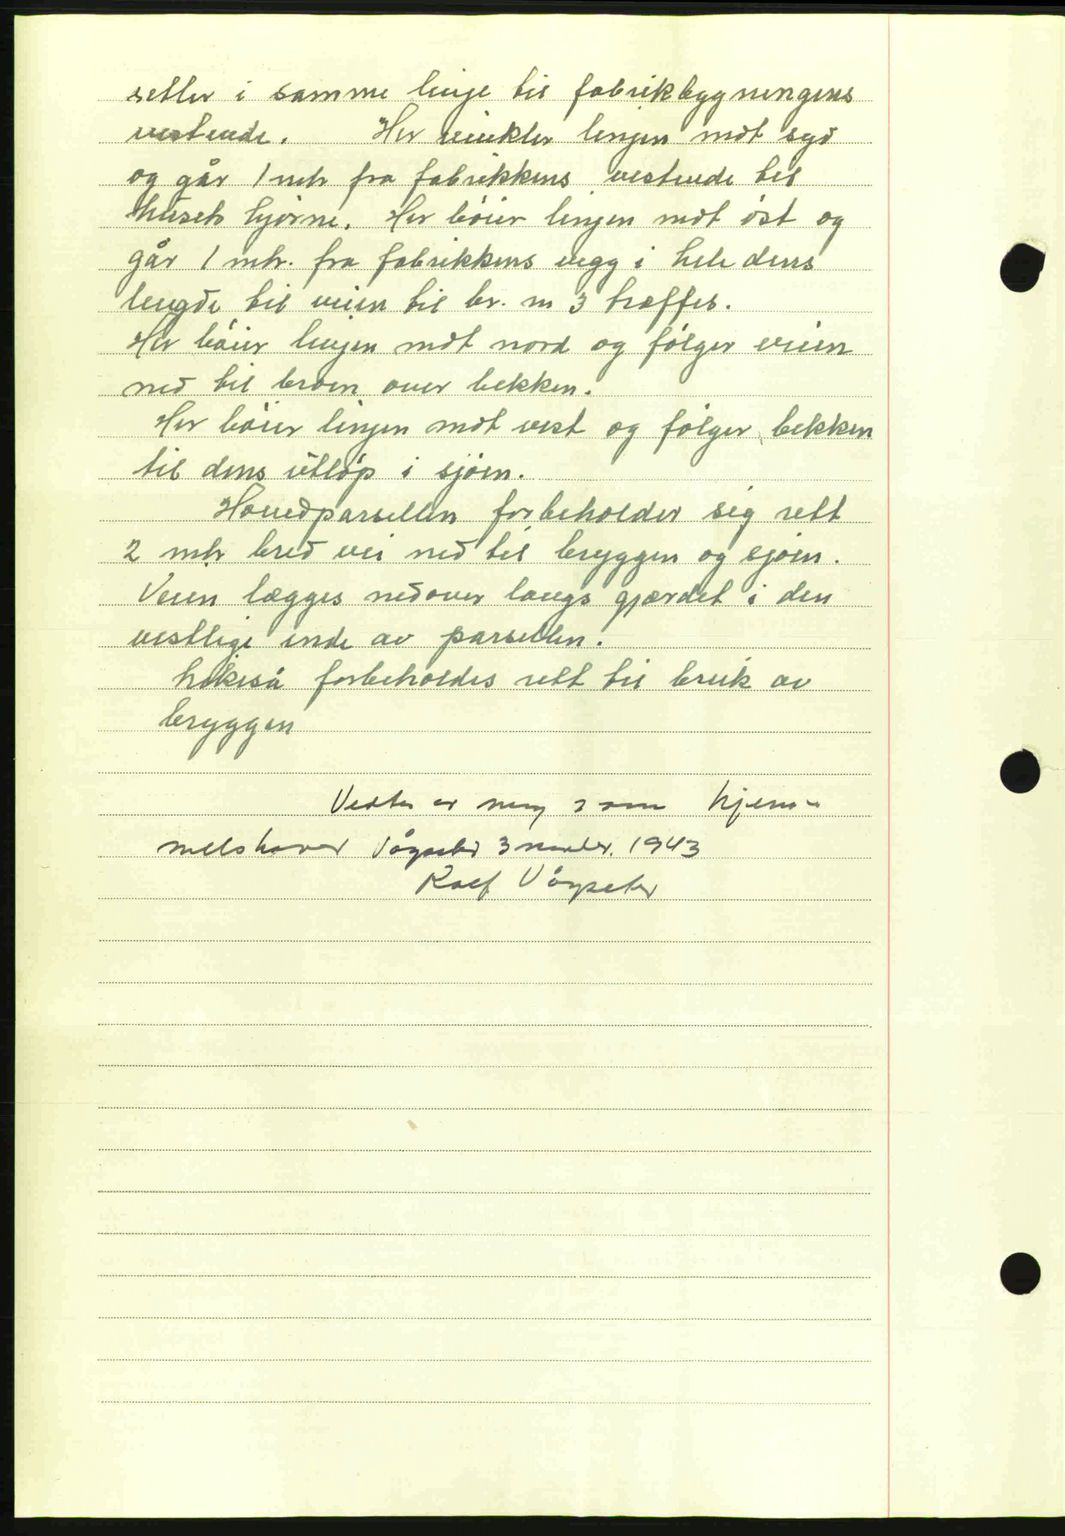 setter i samme linje til fabrikbygningens
vestende. Her vinkler linjen mot syd
og går 1 mtr fra fabrikkens vestende til
husets hjørne. Her bøier linjen mot øst og
går 1 mtr. fra fabrikkens vegg i hele dens
lengde til veien til br. nr 3 træffes.
Her bøier linjen mot nord og følger veien
ned til broen over bekken.
Her bøier linjen mot vest og følger bekken
til dens utløp i sjøen.
Hovedparsellen forbeholder sig rett
2 mtr bred vei ned til bryggen og sjøen.
Veien lægges nedover langs gjærdet i den
vestlige ende av parsellen.
Likeså forbeholdes rett til bruk av
bryggen
Vedtas av meg som hjem-
melshaver Vågseter 3 1943
Rolf Vågseter